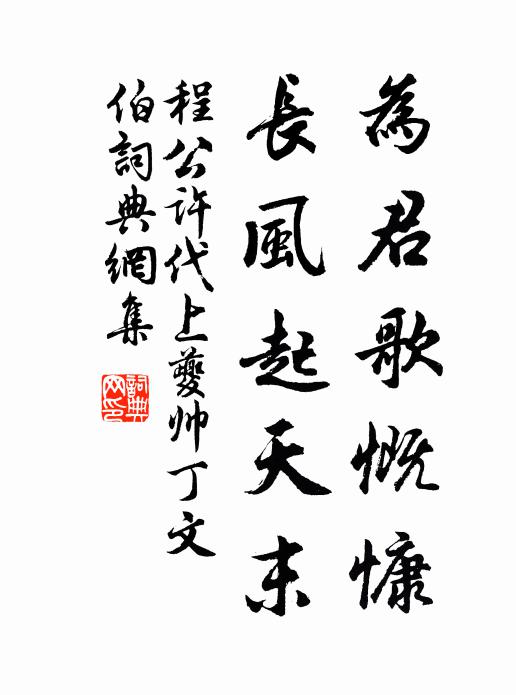 為君歌慨慷
長風起天末
程公許代上夔帅丁文
伯詞典網集
詞典网印